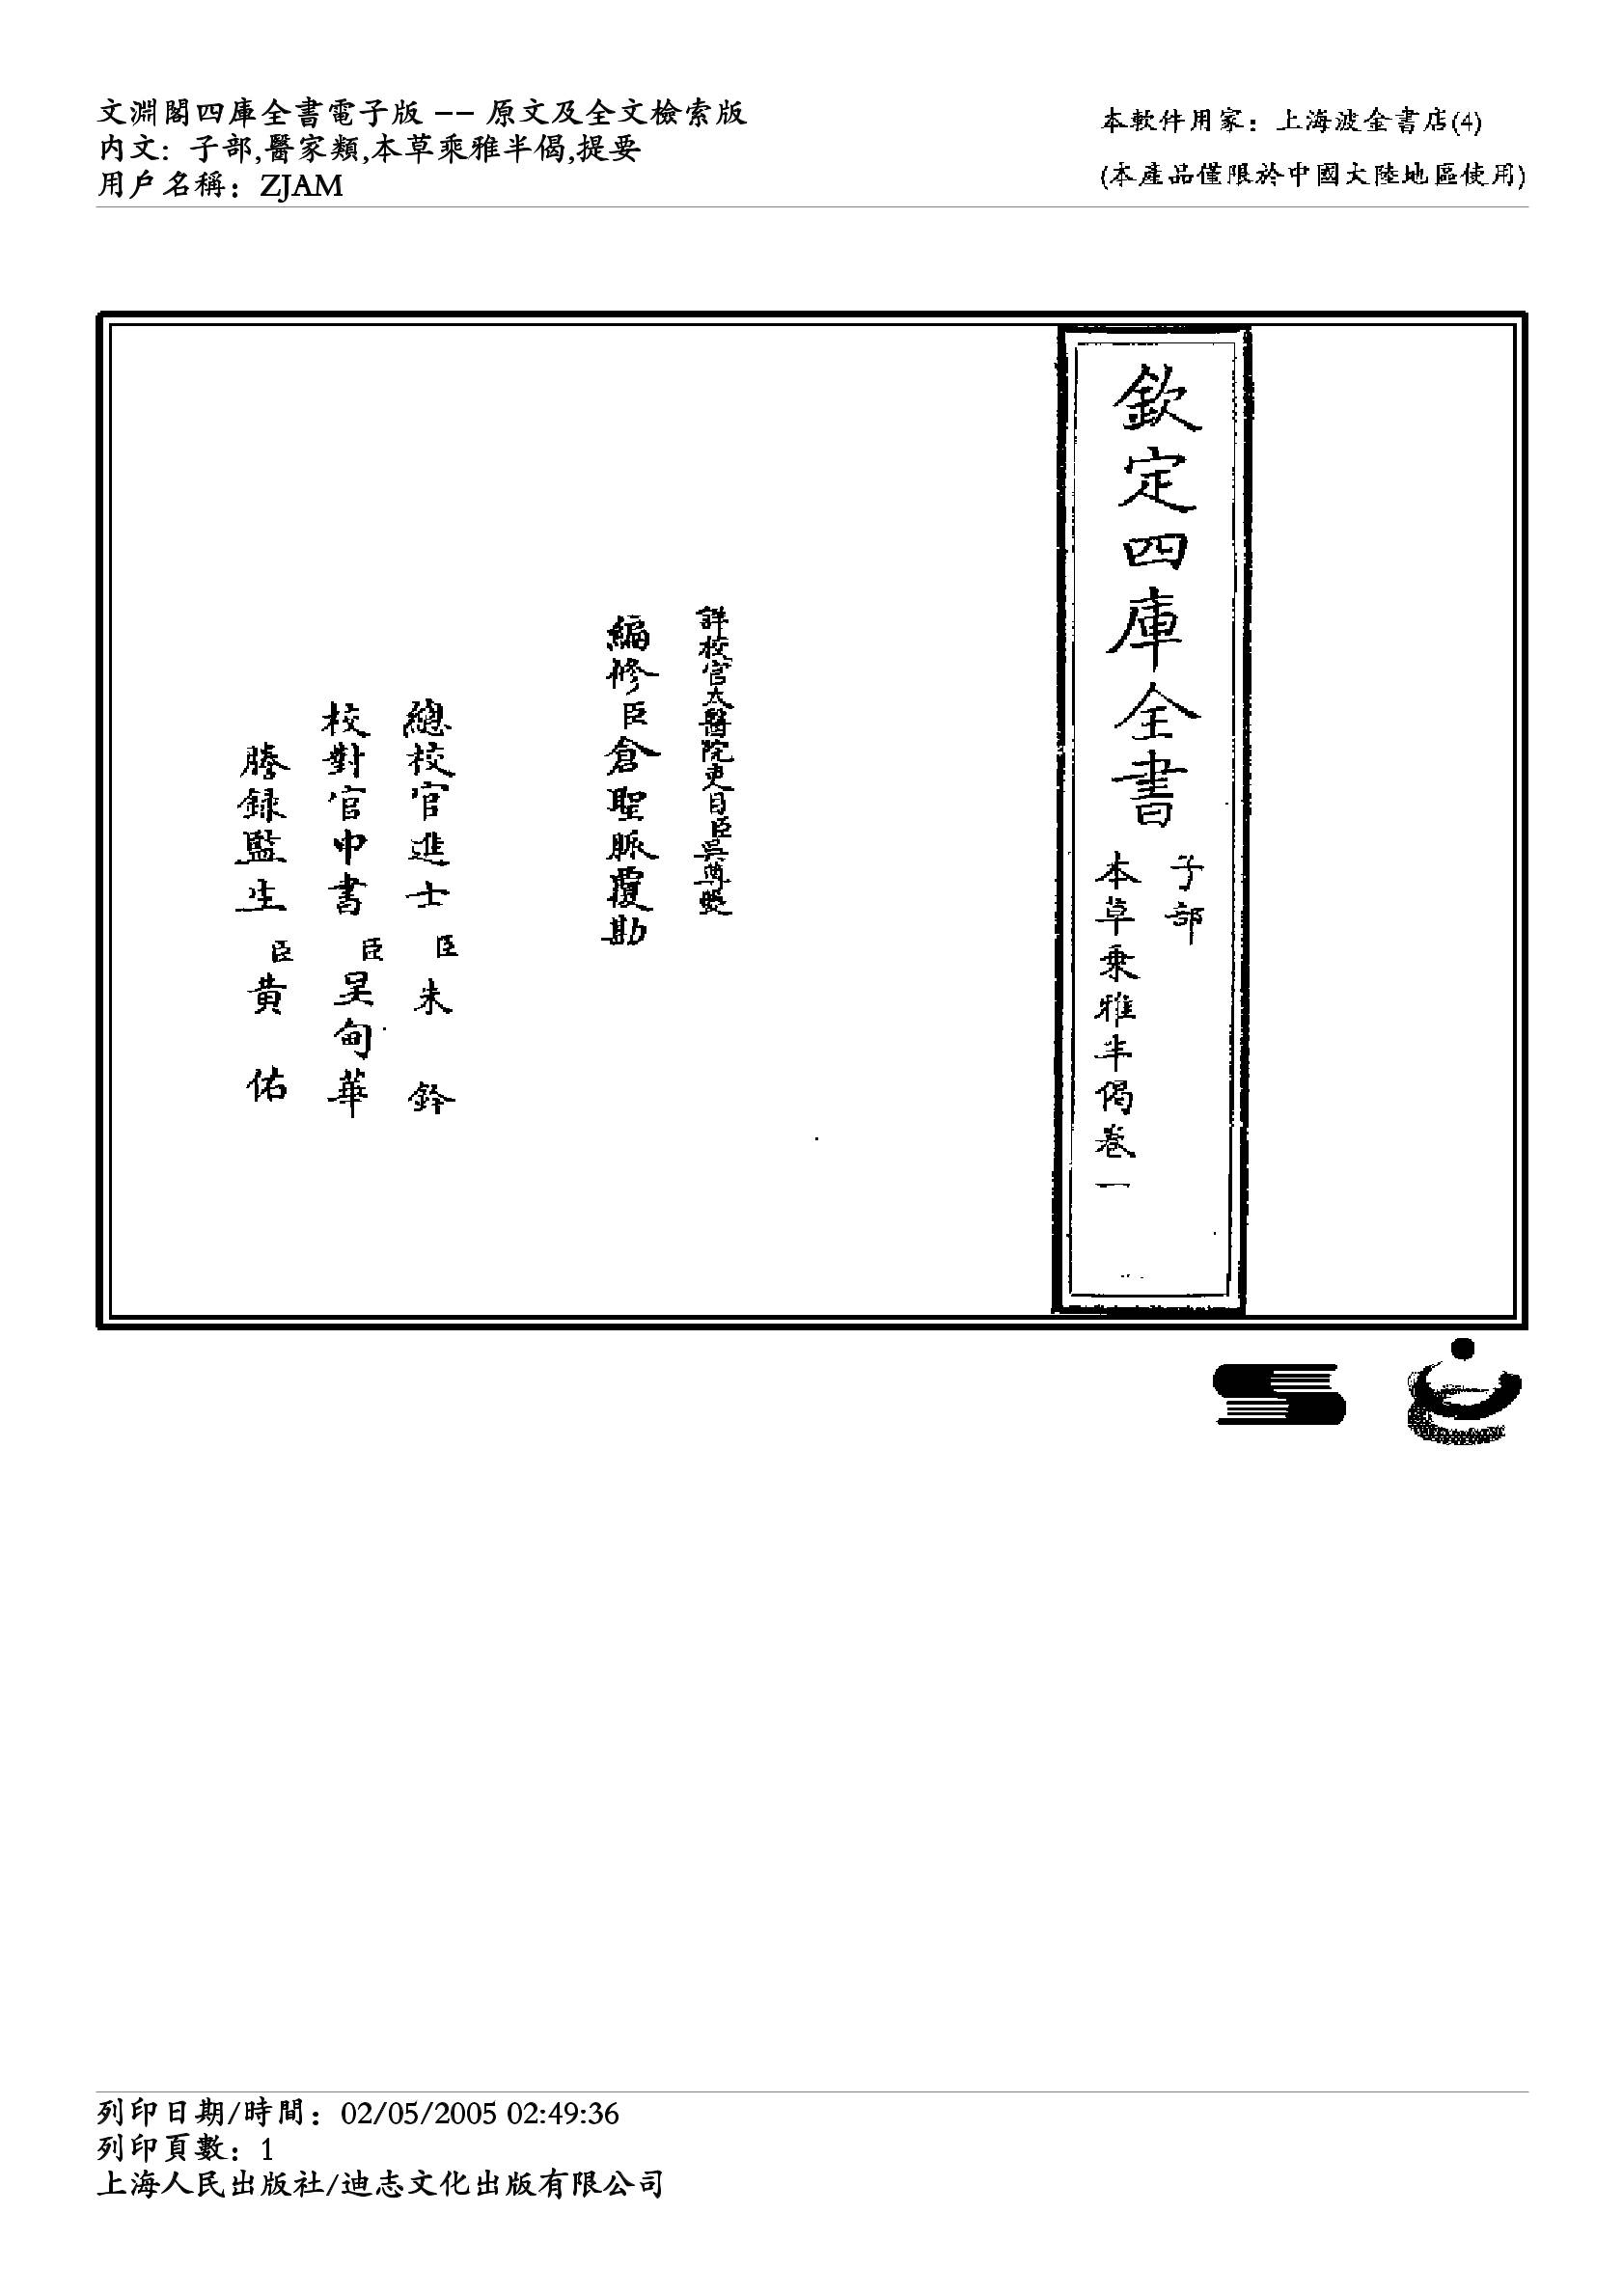 文淵閣四庫全書電子版 -- 原文及全文檢索版
内文: 子部,醫家類,本草乘雅半偈,提要
用戶名稱: ZJAM
本軟件用家: 上海波金書店(4)
(本產品僅限於中國大陸地區使用)
欽定四庫全書
子部
本草乘雅半偈卷一
詳校官太醫院吏目臣吳尊夔
編修臣倉聖脈覆勘
總校官進士臣朱鈐
校對官中書臣吳甸華
謄録監生臣黄佑
列印日期/時間: 02/05/2005 02:49:36
列印頁數: 1
上海人民出版社/迪志文化出版有限公司